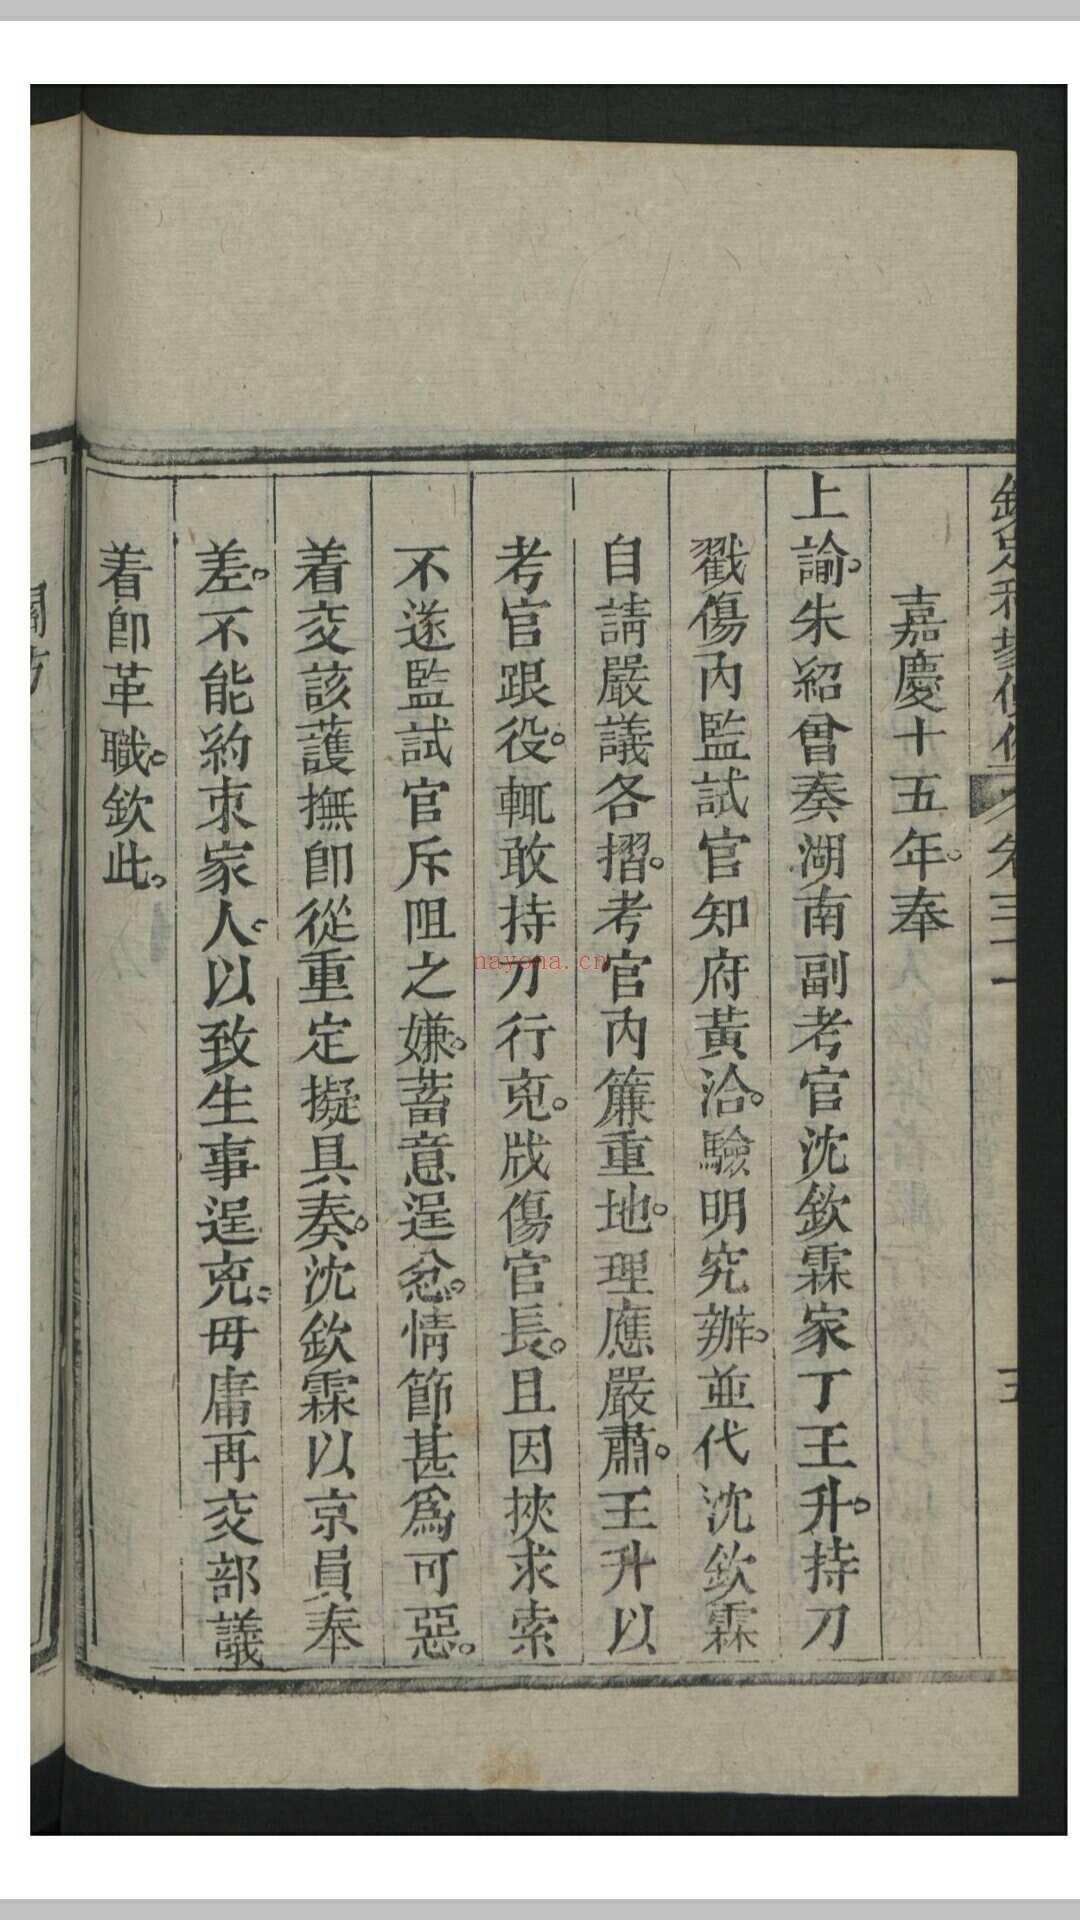 欽定科場條例 卷三十 五
嘉慶十五年奉
上諭朱紹曾奏湖南副考官沈欽霖家丁王升持刀
戳傷內監試官知府黃洽驗明究辦並代沈欽霖
自請嚴議各摺考官內簾重地理應嚴肅王升以
考官跟役輒敢持刀行兇戕傷官長且因挾求索
不遂監試官斥阻之嫌蓄意逞忿情節甚爲可惡
着交該護撫卽從重定擬具奏沈欽霖以京員奉
差不能約束家人以致生事逞兇毋庸再交部議
着卽革職欽此
nayona.cn